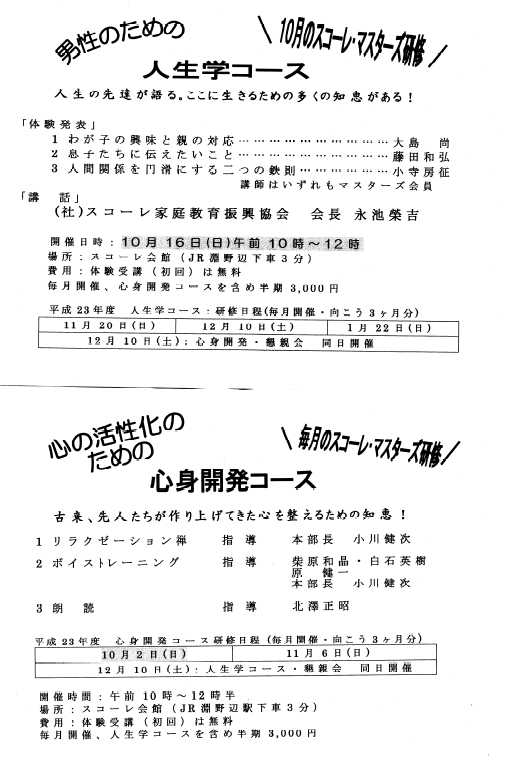 男性のための
＼10月のスコーレ・マスターズ研修／
人生学コース
人生の先達が語る。ここに生きるための多くの知恵がある！
「体験発表」
1 わが子の興味と親の対応 ………………………… 大島 尚
2 息子たちに伝えたいこと ………………………… 藤田和弘
3 人間関係を円滑にする二つの鉄則 ……………… 小寺房征
講師はいずれもマスターズ会員
「講 話」
(社)スコーレ家庭教育振興協会 会長 永池榮吉
開催日時：10月16日(日)午前10時～12時
場所：スコーレ会館（JR淵野辺下車3分）
費用：体験受講（初回）は無料
毎月開催、心身開発コースを含め半期3,000円
平成23年度 人生学コース：研修日程(毎月開催・向こう3ヶ月分)
11月20日(日) 12月10日(土) 1月22日(日)
12月10日(土)；心身開発・懇親会 同日開催
心の活性化の
ための
＼毎月のスコーレ・マスターズ研修／
心身開発コース
古来、先人たちが作り上げてきた心を整えるための知恵！
1 リラクゼーション禅 指導 本部長 小川健次
2 ボイストレーニング 指導 柴原和晶・白石英樹
原 健一
本部長 小川健次
3 朗 読 指導 北澤正昭
平成23年度 心身開発コース研修日程(毎月開催・向こう3ヶ月分)
10月2日(日) 11月6日(日)
12月10日(土)；人生学コース・懇親会 同日開催
開催時間：午前10時～12時半
場所：スコーレ会館（JR淵野辺駅下車3分）
費用：体験受講（初回）は無料
毎月開催、人生学コースを含め半期3,000円